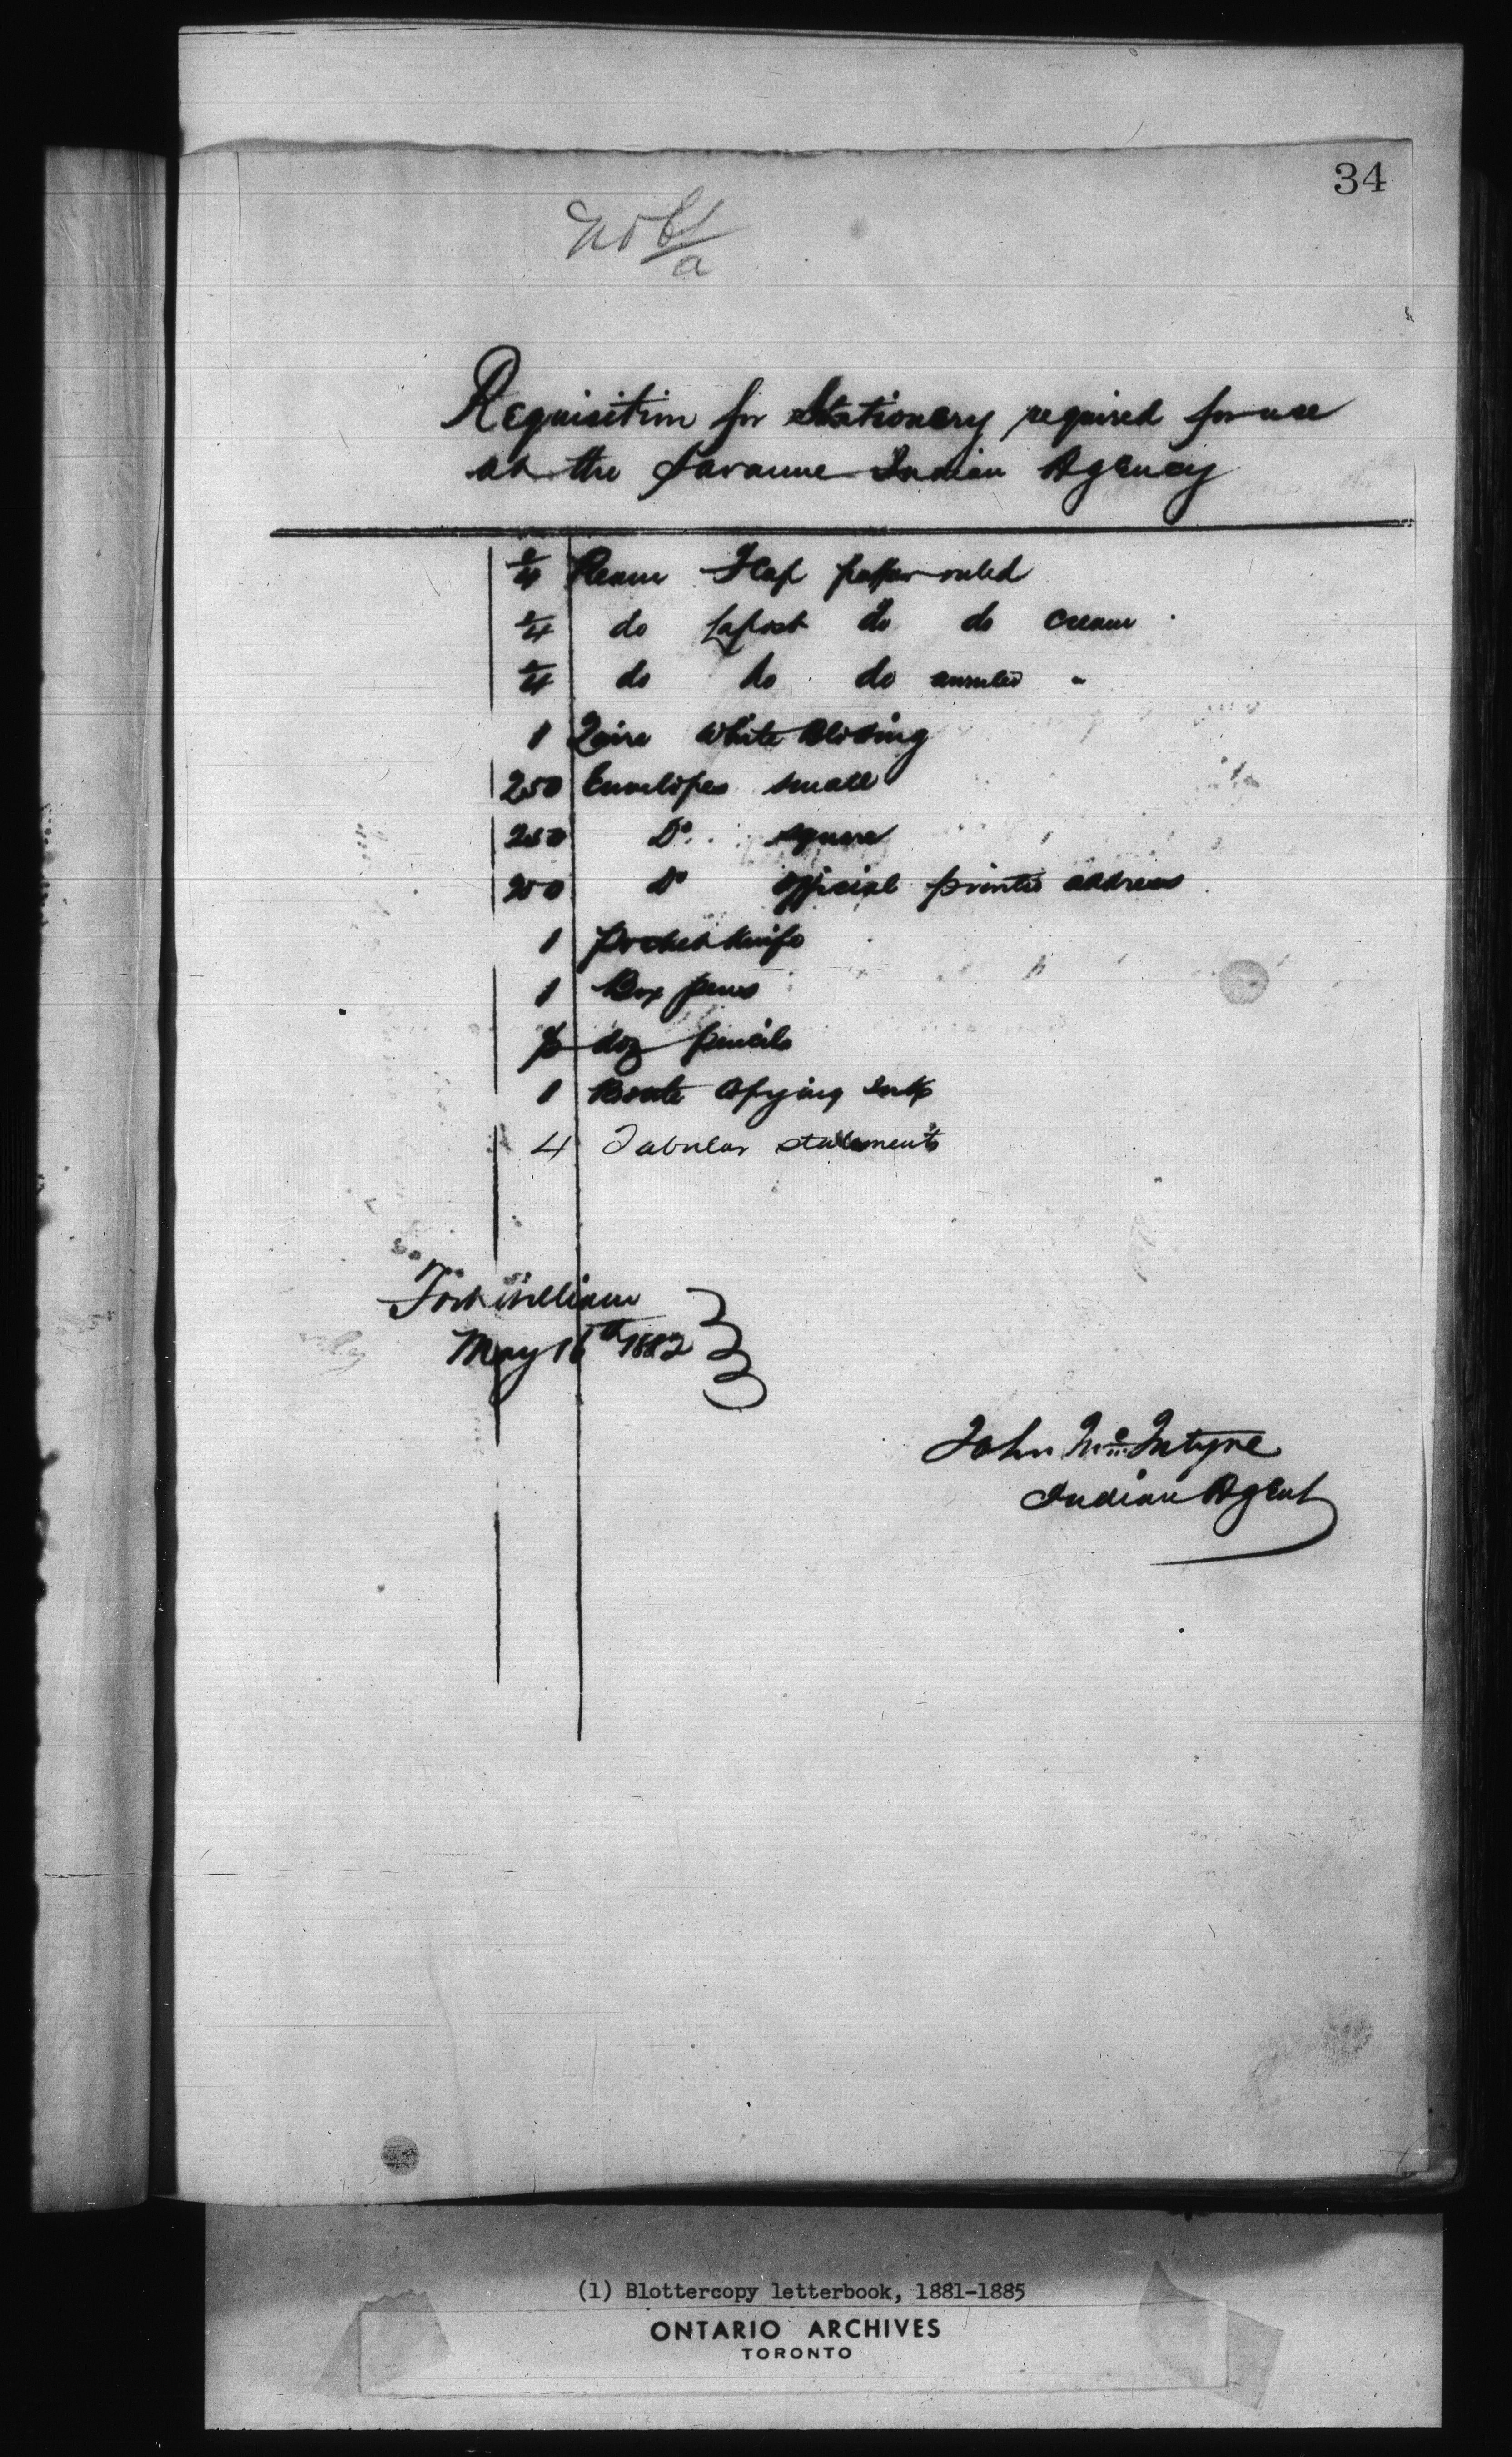 34
Requisition for Stationery required for use
at the Savanne Indian Agency
Ream Fcap paper ruled
do Lapost do do cream
do do do unruled "
1 Quire White Blotting
250 Envelopes small
250 Do square
200 Do official printed address
1 pocket Knife
1 Box pens
doz pencils
1 Bottle Copying Ink
4 Tabular statements
Fort William
May 16th 1882
John McIntyre
Indian Agent
(1) Blottercopy letterbook, 1881-1885
ONTARIO ARCHIVES
TORONTO